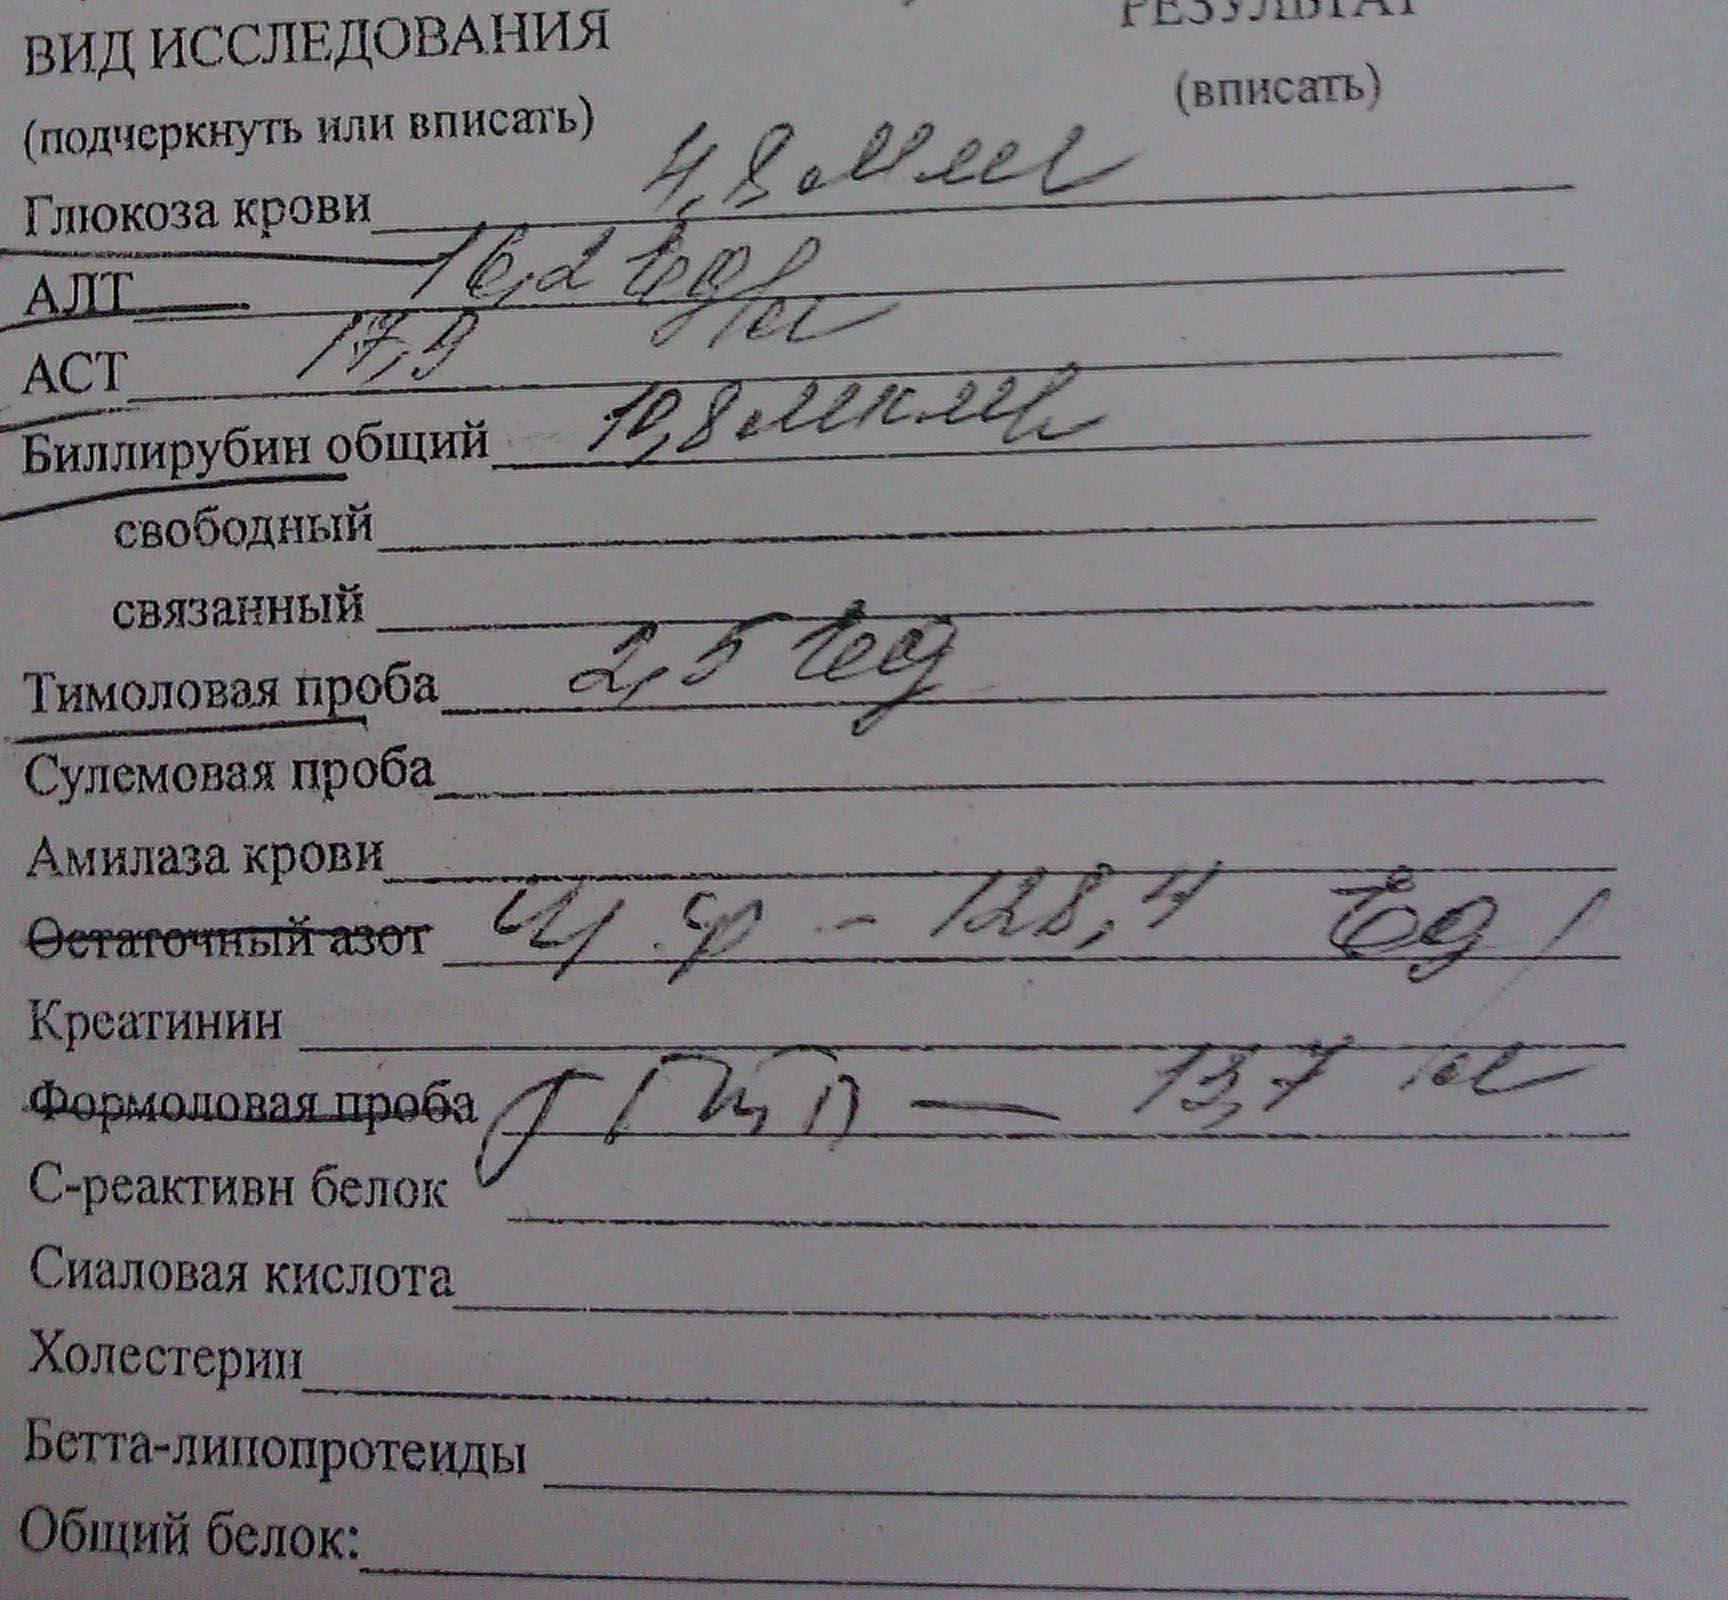 ВИД ИССЛЕДОВАНИЯ РЕЗУЛЬТАТ
(подчеркнуть или вписать) (вписать)
Глюкоза крови 4,8 ммл
АЛТ 16,2 Ед/л
АСТ 17,9
Биллирубин общий 10,8 мкмл
свободный
связанный
Тимоловая проба 2,5 Ед
Сулемовая проба
Амилаза крови
Остаточный азот Щ.ф - 128,4 Ед/
Креатинин
Формоловая проба ГГТП — 13,7
С-реактивн белок
Сиаловая кислота
Холестерин
Бетта-липопротеиды
Общий белок: